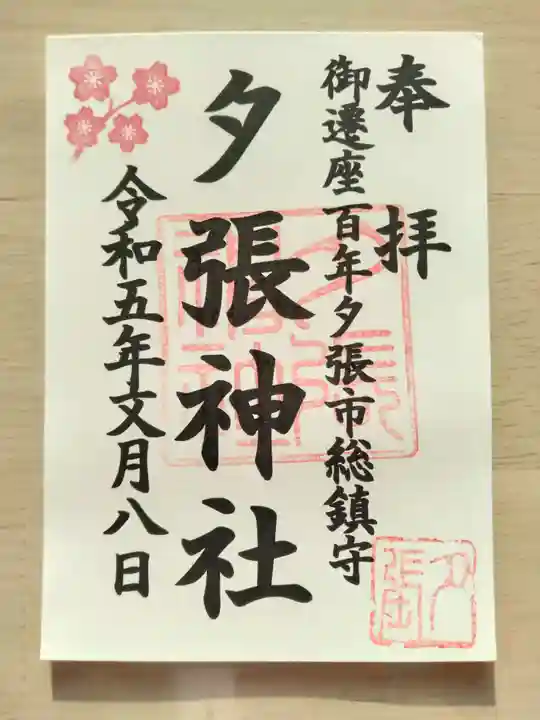 奉拝
御遷座百年夕張市総鎮守
夕張神社
令和五年文月八日